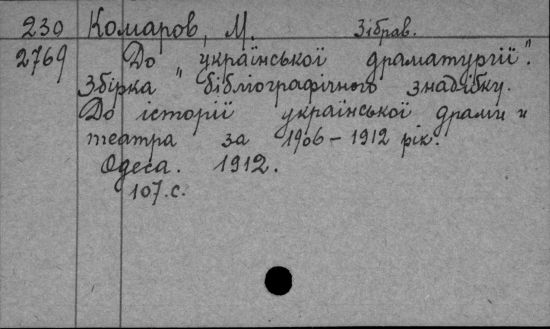 239 Комаров, М. Зібрав.
2769 До "української драматургії".
Збірка бібліографічного знадібку.
До історії української драми и
театра за 1906–1912 рік.
Одеса. 1912.
107.с.